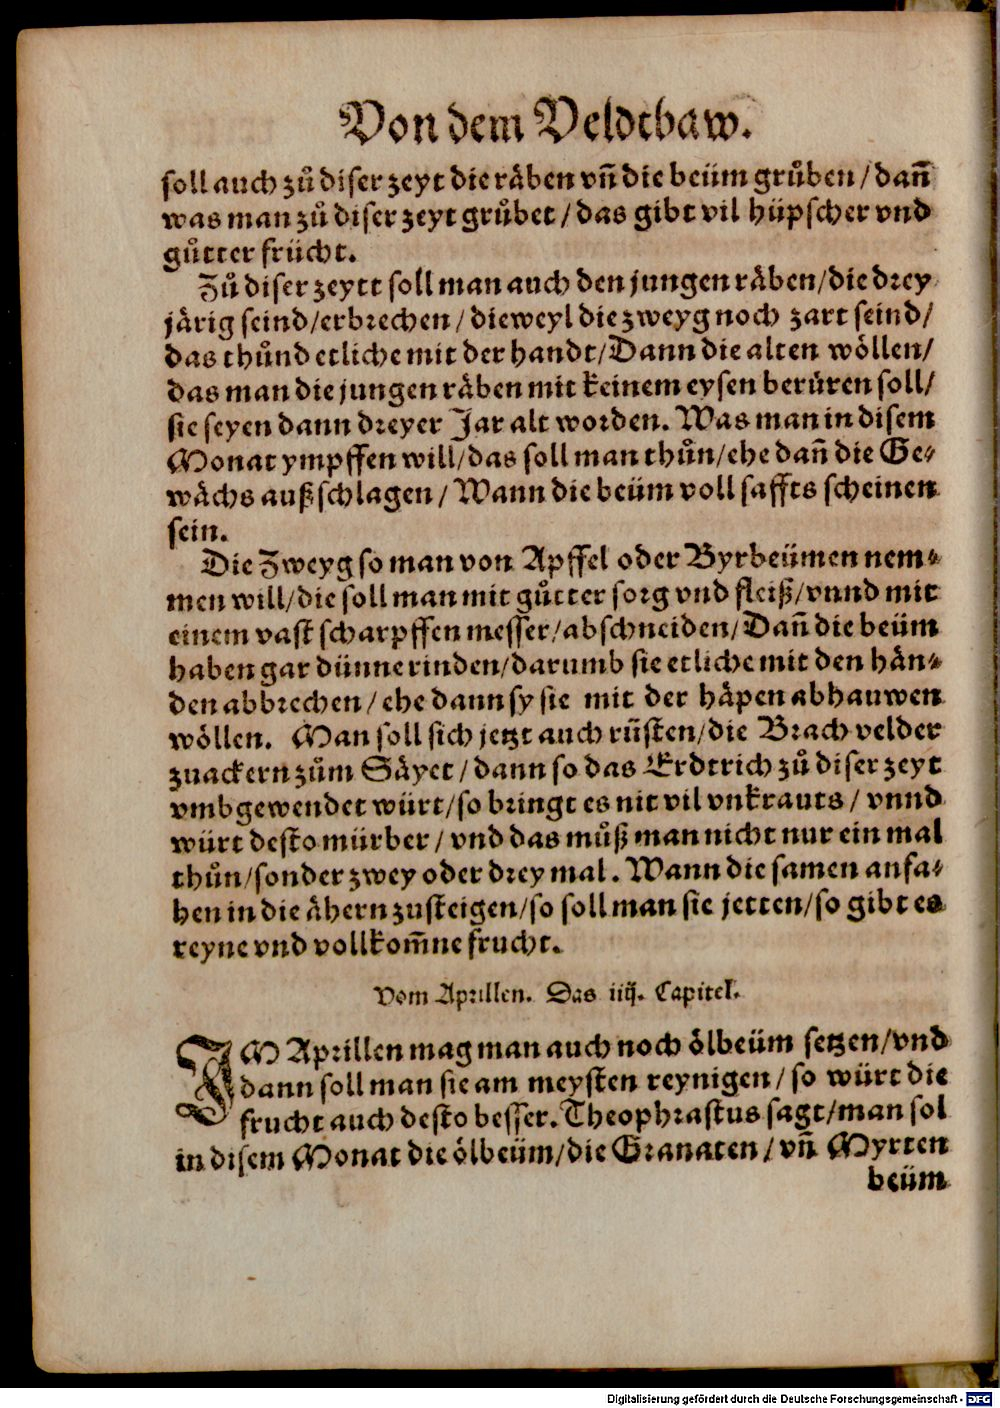 Von dem Veldtbaw.
soll auch zuͦ diser zeyt die raͤben vn̄ die beüm gruͦben / dan̄
was man zuͦ diser zeyt gruͦbet / das gibt vil hüpscher vnd
guͦtter frücht.
Zuͦ diser zeytt soll man auch den jungen raͤben / die drey
jaͤrig seind / erbrechen / dieweyl die zweyg noch zart seind /
das thuͦnd etliche mit der handt / Dann die alten woͤllen /
das man die jungen raͤben mit keinem eysen beruͤren soll /
sie seyen dann dreyer Jar alt worden. Was man in disem
Monat ympffen will / das soll man thuͦn / ehe dan̄ die Ge⸗
waͤchs außschlagen / Wann die beüm voll saffts scheinen
sein.
Die Zweyg so man von Apffel oder Byrbeümen nem⸗
men will / die soll man mit guͦtter sorg vnd fleiß / vnnd mit
einem vast scharpffen messer / abschneiden / Dan̄ die beüm
haben gar dünne rinden / darumb sie etliche mit den haͤn⸗
den abbrechen / ehe dann sy sie mit der haͤpen abhauwen
woͤllen. Man soll sich jetzt auch rüsten / die Brach velder
zuackern zuͦm Saͤyet / dann so das Erdtrich zuͦ diser zeyt
vmbgewendet würt / so bringt es nit vil vnkrauts / vnnd
würt desto mürber / vnd das muͦß man nicht nur ein mal
thuͦn / sonder zwey oder drey mal. Wann die samen anfa⸗
hen in die aͤhern zusteigen / so soll man sie jetten / so gibt es
reyne vnd vollkom̄ne frucht.
Vom Aprillen. Das iiij. Capitel.
IM Aprillen mag man auch noch oͤlbeüm setzen / vnd
dann soll man sie am meysten reynigen / so würt die
frucht auch desto besser. Theophrastus sagt / man sol
in disem Monat die oͤlbeüm / die Granaten / vn̄ Myrten
beüm
Digitalisierung gefördert durch die Deutsche Forschungsgemeinschaft - DFG